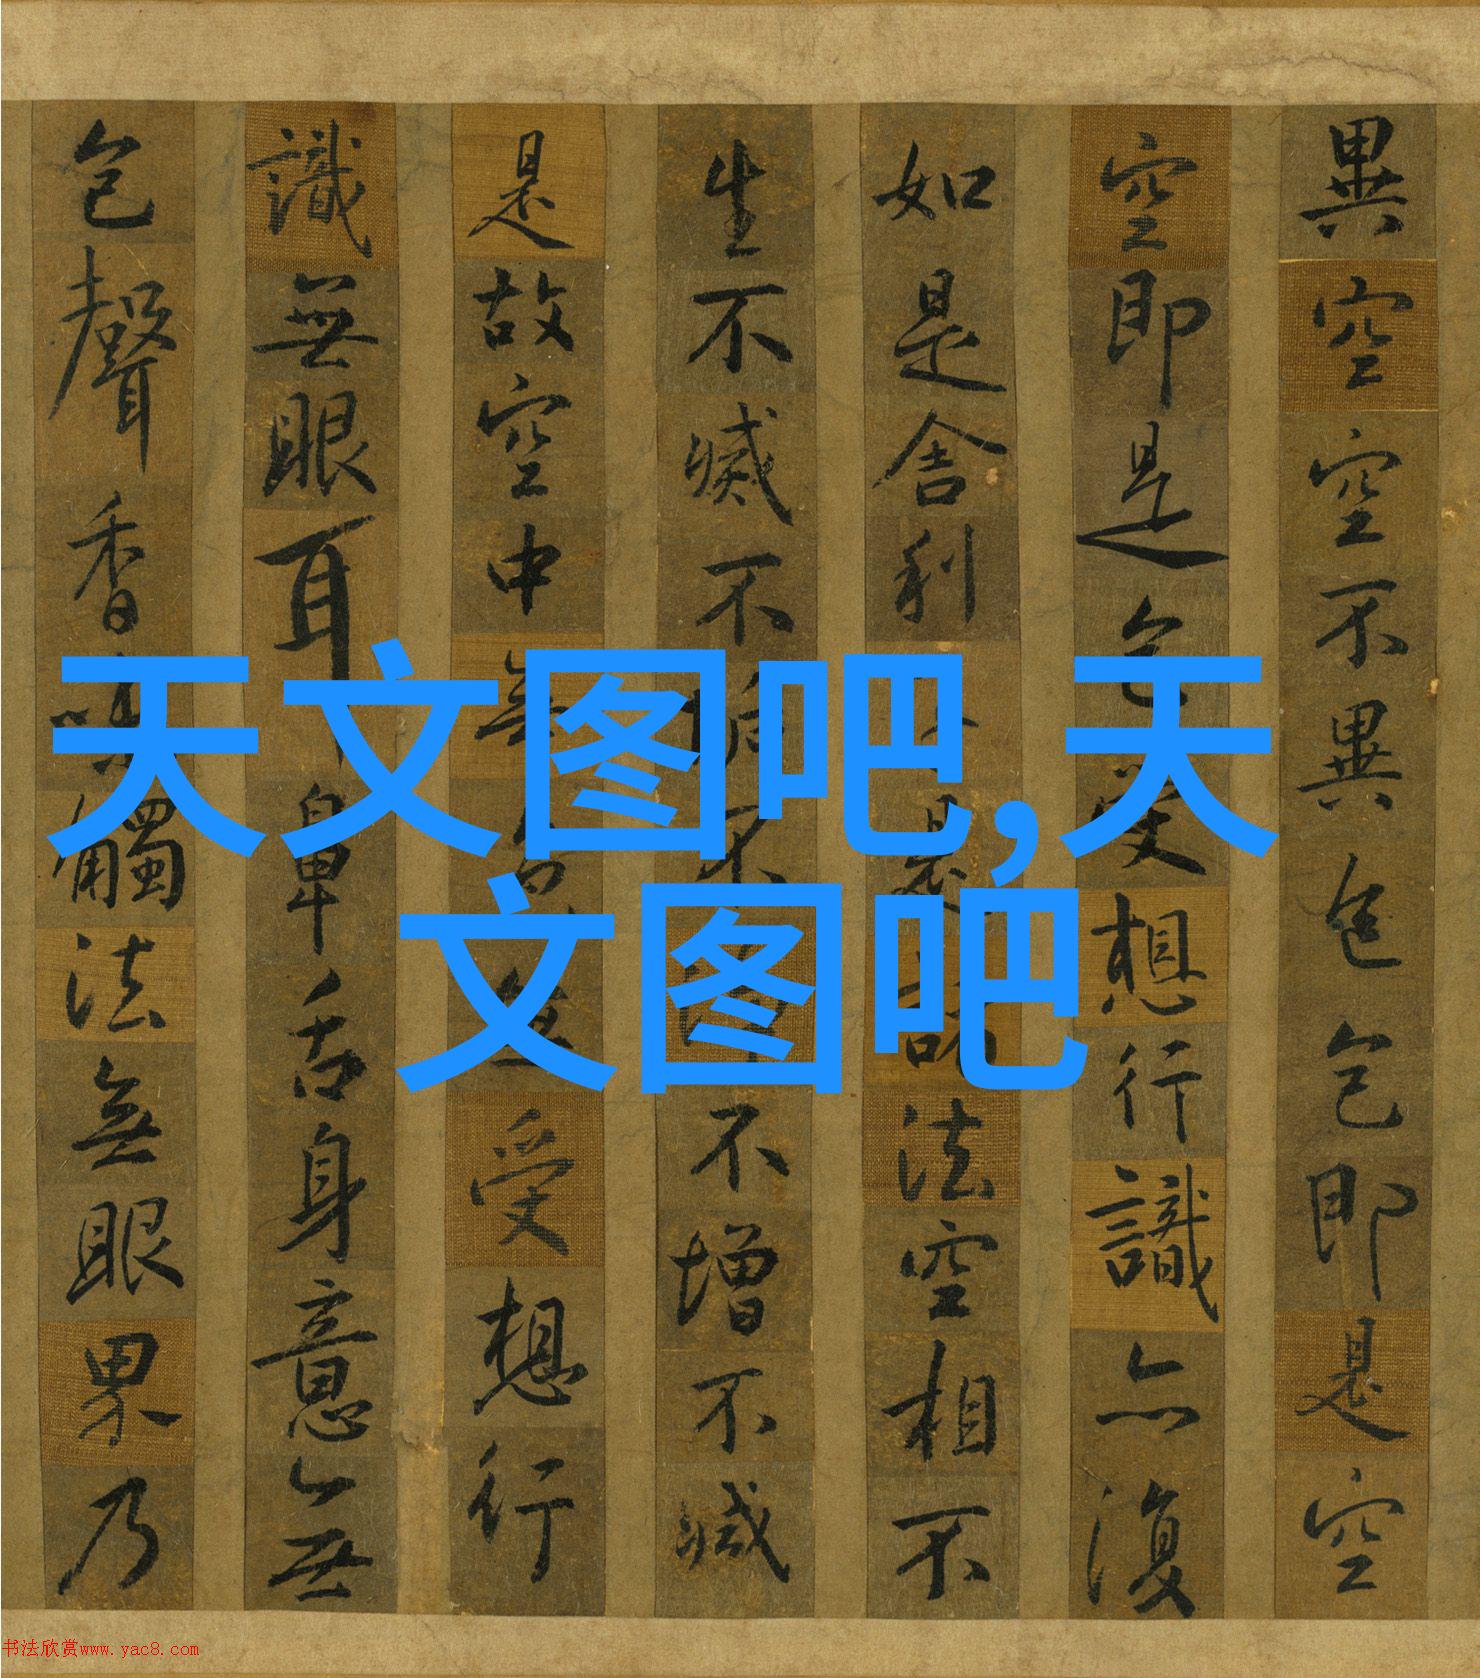 異空空不異色色即是空
空即是色受想行識亦復
如是舍利是法空相不
生不滅不不不增不減
是故空中受想行
識無眼耳鼻舌身意無
色聲香味觸法無眼界乃
天文图吧,天
文图吧
书法欣赏www.yac8.com